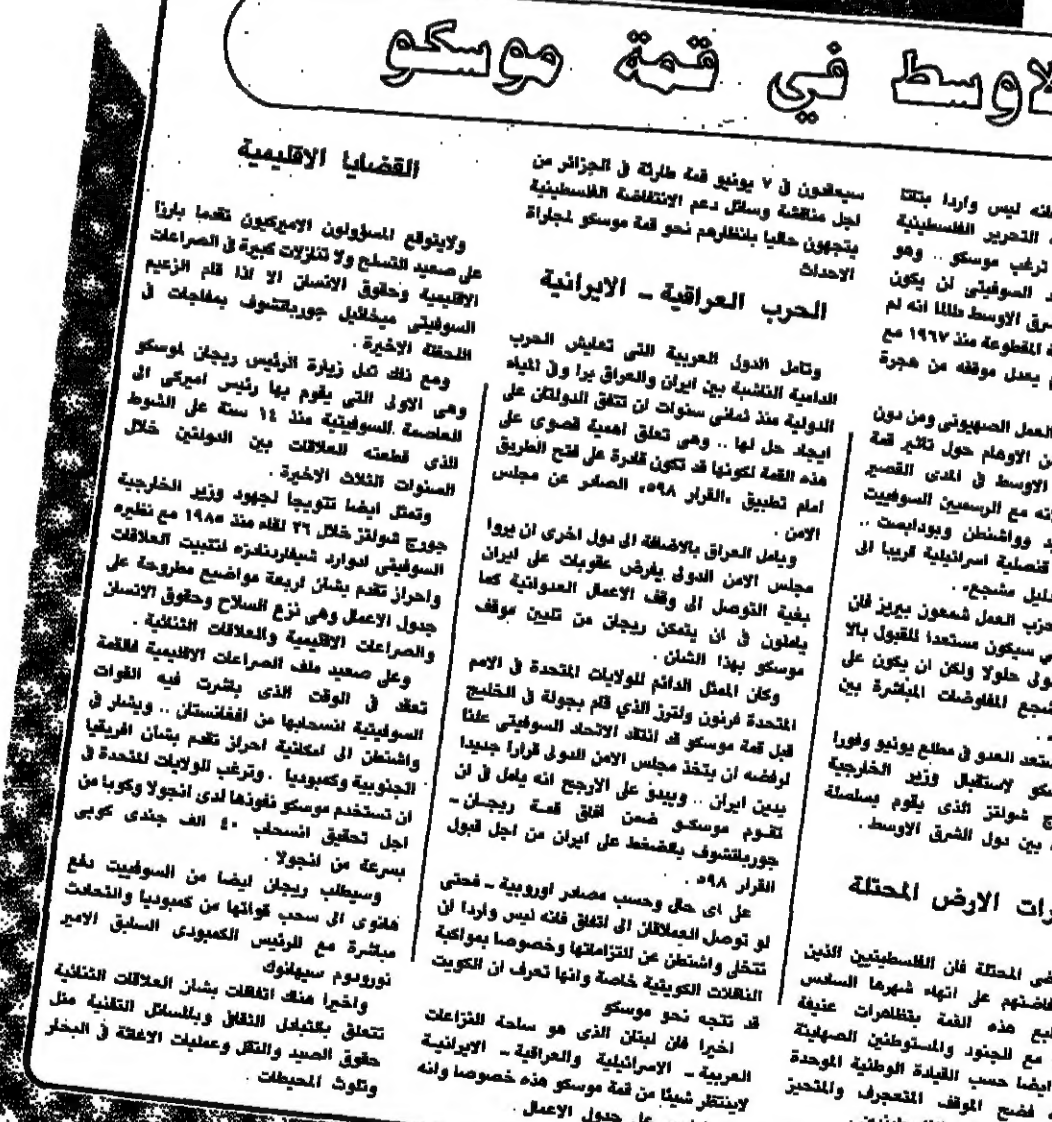 لاوسط في قمة موسكو
فانه ليس واردا بتاتا
التحرير الفلسطينية
ترغب موسكو .. وهو
السوفيتى لن يكون
الشرق الاوسط طالما انه لم
المقطوعة منذ ١٩٦٧ مع
يعدل موقفه من هجرة
العمل الصهيونى ومن دون
من الاوهام حول تاثير قمة
الاوسط في المدى القصير
مع الرسميين السوفييت
وواشنطن وبودابست ..
قنصلية اسرائيلية قريبا الى
دليل مشجع» .
حزب العمل شمعون بيريز فان
سيكون مستعدا للقبول بالا
حلولا ولكن ان يكون على
تشجع المفاوضات المباشرة بين
يستعد العدو في مطلع يونيو وفورا
موسكو لاستقبال وزير الخارجية
جورج شولتز الذى يقوم بسلسلة
بين دول الشرق الاوسط .
الارض المحتلة
المحتلة فان الفلسطينيين الذين
على انهاء شهرها السادس
هذه القمة بتظاهرات عنيفة
مع الجنود والمستوطنين الصهاينة
ايضا حسب القيادة الوطنية الموحدة
فضح الموقف المتعجرف والمتحيز
سيعقدون في ٧ يونيو قمة طارئة في الجزائر من
اجل مناقشة وسائل دعم الانتفاضة الفلسطينية
يتجهون حاليا بانظارهم نحو قمة موسكو لمجاراة
الاحداث
الحرب العراقية ــ الايرانية
وتامل الدول العربية التى تعايش الحرب
الدامية الناشبة بين ايران والعراق برا وفي المياه
الدولية منذ ثمانى سنوات ان تتفق الدولتان على
ايجاد حل لها .. وهى تعلق اهمية قصوى على
هذه القمة لكونها قد تكون قادرة على فتح الطريق
امام تطبيق «القرار ٥٩٨» الصادر عن مجلس
الامن .
ويامل العراق بالاضافة الى دول اخرى ان يروا
مجلس الامن الدولى يفرض عقوبات على ايران
بغية التوصل الى وقف الاعمال العدوانية كما
ياملون في ان يتمكن ريجان من تليين موقف
موسكو بهذا الشان .
وكان الممثل الدائم للولايات المتحدة في الامم
المتحدة فرنون ولترز الذي قام بجولة في الخليج
قبل قمة موسكو قد انتقد الاتحاد السوفيتى علنا
لرفضه ان يتخذ مجلس الامن الدولى قرارا جديدا
يدين ايران .. ويبدو على الارجح انه يامل في ان
تقوم موسكو ضمن افاق قمة ريجان ــ
جورباتشوف بالضغط على ايران من اجل قبول
القرار ٥٩٨ .
على اى حال وحسب مصادر اوروبية ــ فحتى
لو توصل العملاقان الى اتفاق فانه ليس واردا ان
تتخلى واشنطن عن التزاماتها وخصوصا بمواكبة
الناقلات الكويتية خاصة وانها تعرف ان الكويت
قد تتجه نحو موسكو
اخيرا فان لبنان الذى هو ساحة للنزاعات
العربية ــ الاسرائيلية والعراقية ــ الايرانية
لاينتظر شيئا من قمة موسكو هذه خصوصا وانه
على جدول الاعمال .
القضايا الاقليمية
ولايتوقع المسؤولون الاميركيون تقدما بارزا
على صعيد التسلح ولا تنازلات كبيرة في الصراعات
الاقليمية وحقوق الانسان الا اذا قام الزعيم
السوفيتى ميخائيل جورباتشوف بمفاجات في
اللحظة الاخيرة .
ومع ذلك تدل زيارة الرئيس ريجان لموسكو
وهى الاولى التى يقوم بها رئيس اميركى الى
العاصمة السوفيتية منذ ١٤ سنة على الشوط
الذى قطعته العلاقات بين الدولتين خلال
السنوات الثلاث الاخيرة .
وتمثل ايضا تتويجا لجهود وزير الخارجية
جورج شولتز خلال ٢٦ لقاء منذ ١٩٨٥ مع نظيره
السوفيتى ادوارد شيفاردنادزه لتثبيت العلاقات
واحراز تقدم بشان اربعة مواضيع مطروحة على
جدول الاعمال وهى نزع السلاح وحقوق الانسان
والصراعات الاقليمية والعلاقات الثنائية .
وعلى صعيد ملف الصراعات الاقليمية فالقمة
تعقد في الوقت الذى باشرت فيه القوات
السوفيتية انسحابها من افغانستان .. ويشار في
واشنطن الى امكانية احراز تقدم بشان افريقيا
الجنوبية وكمبوديا . وترغب الولايات المتحدة في
ان تستخدم موسكو نفوذها لدى انجولا وكوبا من
اجل تحقيق انسحاب ٤٠ الف جندى كوبى
بسرعة من انجولا .
وسيطلب ريجان ايضا من السوفييت دفع
هانوى الى سحب قواتها من كمبوديا والتحادث
مباشرة مع الرئيس الكمبودى السابق الامير
نورودوم سيهانوك
واخيرا هناك اتفاقات بشان العلاقات الثنائية
تتعلق بالتبادل الثقافي وبالمسائل التقنية مثل
حقوق الصيد والنقل وعمليات الاغاثة في البحار
وتلوث المحيطات .